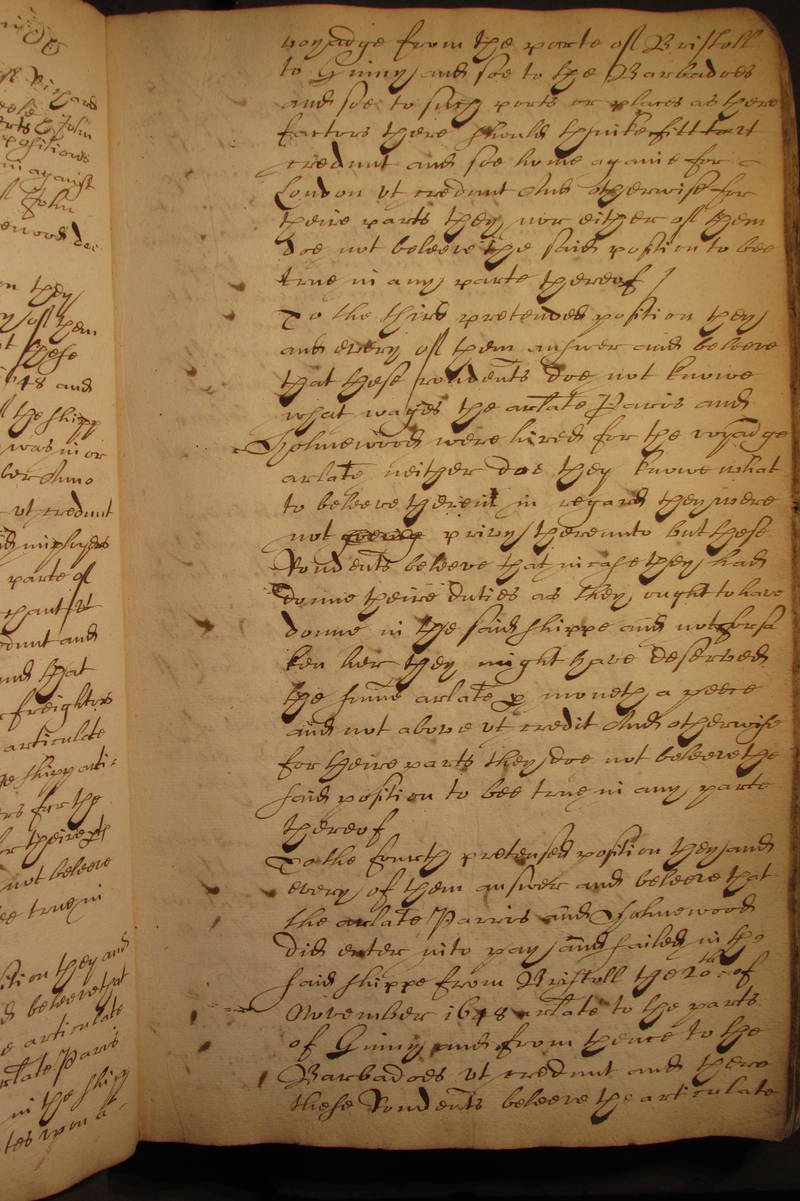 oo
Richard
John
positions
in against
John
ewood doe
on they
of them
these
1648 and
the shipp
was in or
ber Anno
ut credunt
parte of
ut
edunt and
and that
freightors
articulate
he shipp arti=
rs for the
or theire pts
not beleeve
bee true in
sition they and
beleeve that
e articulate
rlate Paris
in the shipp
voyadge from the porte of Bristoll
to Ginny and soe to the Barbadoes
and soe to such ports or places as there
factors there should thinke fitt to ut
credunt and soe home againe for
London ut credunt And otherwise for
theire parts they nor either of them
doe not beleeve the said position to bee
true in any parte thereof /
To the third pretended position they
and every of them answer and beleeve
that these rondents doe not knowe
what wages the arlate Paris and
Holmewood were hired for the voyadge
arlate neither doe they knowe what
to beleeve therein in regard they were
not privy thereunto but these
Rondents beleeve that in case they had
donne theire duties as they ought to have
donne in the said shippe and not forsa
ken her they might have deserved
the summe arlate p moneth a peece
and not above ut credit And otherwise
for theire parts they doe not beleeve the
said position to bee true in any parte
thereof
To the fourth pretensed position they and
every of them answer and beleeve that
the arlate Parris and Holmewood
did enter into pay and sailed in the
said shippe from Bristoll the 20th of
November 1648 arlate to the parts
of Ginny and from thence to the
Barbadoes ut credunt and there
these Rondents beleeve the articulate